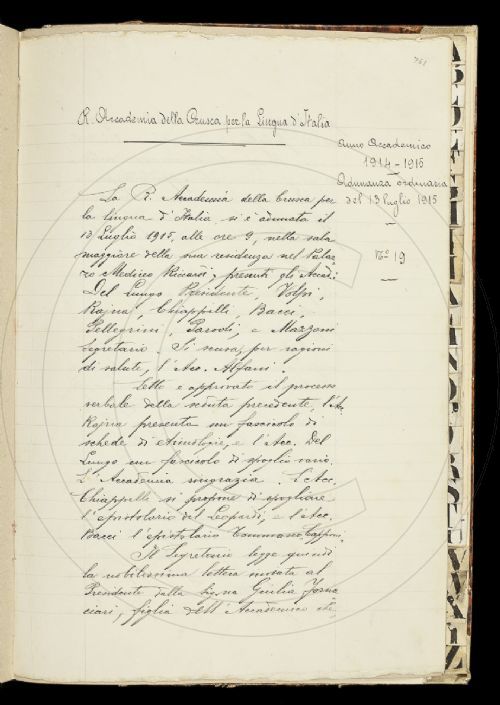 761
R. Accademia della Crusca per la Lingua d'Italia
Anno Accademico
1914-1915
Adunanza ordinaria
del 13 luglio 1915
N.º 19
La R. Accademia della Crusca per
la lingua d'Italia si è adunata il
13 Luglio 1915, alle ore 9, nella sala
maggiore della sua residenza nel Palaz-
zo Mediceo Riccardi; presenti gli Accad.i
Del Lungo Presidente, Volpi,
Rajna, Chiappelli, Bacci,
Pellegrini, Parodi, e Mazzoni
Segretario. Si scusa, per ragioni
di salute, l'Acc. Alfani.
Letto e approvato il processo
verbale della seduta precedente, l'Ac.
Rajna presenta un fascicolo di
schede di etimologie, e l'Acc. Del
Lungo un fascicolo di spoglio vario.
L'Accademia ringrazia. L'Acc.
Chiappelli si propone di spogliare
l'epistolario del Leopardi, e l'Acc.
Bacci l'epistolario Tommaseo Capponi.
Il Segretario legge quindi
la nobilissima lettera inviata al
Presidente dalla Sig.na Giulia Forna-
ciari, figlia dell'Accademico che,